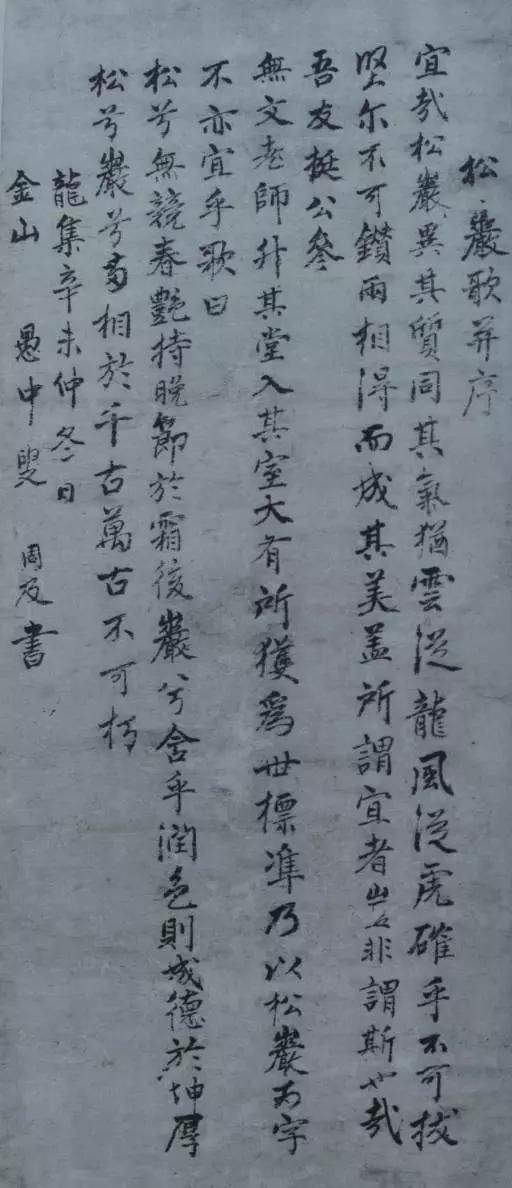 松巖歌并序
宜哉松巖異其質同其氣猶雲從龍風從虎確乎不可拔
堅尔不可鑽兩相得而成其美盖所謂宜者非謂斯也哉
吾友挺公參
無文老師升其堂入其室大有所獲為世標準乃以松巖為字
不亦宜乎歌曰
松兮無競春艷持晚節於霜後巖兮含乎潤色則成德於坤厚
松兮巖兮相於千古萬古不可朽
龍集辛未仲冬日
金山 愚中叟 周及書